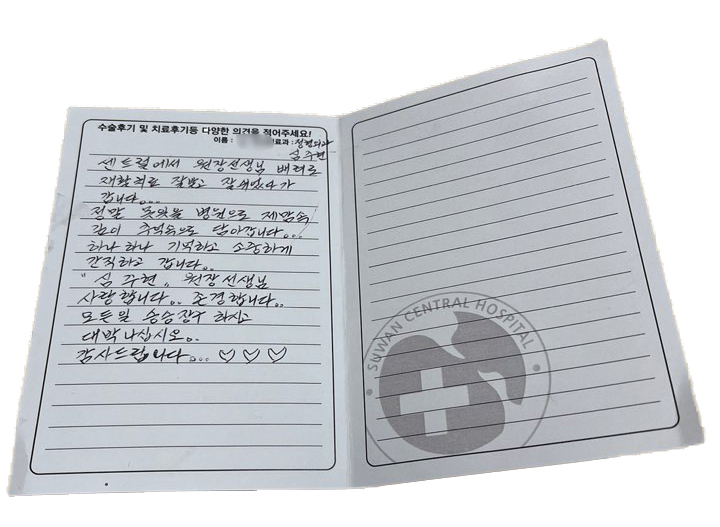 수술후기 및 치료후기등 다양한 의견을 적어주세요!
이름 : 진료과 : 정형외과
심주현
센트럴에서 원장선생님 배려로
재활치료 잘받고 잘 쉬었다가
갑니다...
정말 좋은 병원으로 제맘속
깊이 추억속으로 담아갑니다...
하나 하나 기억하고 소중하게
간직하고 갑니다..
"심주현" 원장선생님
사랑합니다.. 존경합니다..
모든일 승승장구 하시고
대박나십시오..
감사드립니다... ♡ ♡ ♡
SUWAN CENTRAL HOSPITAL